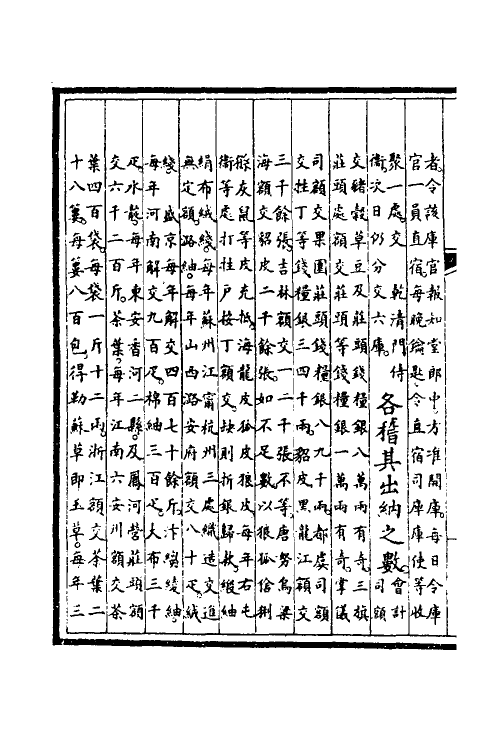 者。令該庫官報知堂郎中。方准開庫。每日令庫
官一員直宿。每晚鑰匙。令直宿司庫庫使等收
聚一處。交乾清門侍
衛。次日仍分交六庫。
各稽其出納之數。
會計
司額
交豬穀草豆及莊頭錢糧銀八萬兩有奇。三旗
莊頭處額交莊頭等錢糧銀一萬兩有奇。掌儀
司額交果園莊頭錢糧銀八九千兩。都虞司額
交牲丁等錢糧銀三四千兩。貂皮黑龍江額交
三千餘張。吉林額交一二千張不等。唐努烏梁
海額交貂皮二千餘張。如不足數。以狼狐猞猁
猻灰鼠等皮充抵。海龍皮狐皮。每年右屯
衞等處打牲戶按丁額交。缺則折銀歸款。緞紬
絹布絨綫。每年蘇州江甯杭州三處織造交進
無定額。潞紬。每年山西潞安府額交八十疋。絨
綫。盛京每年解交四百七十餘斤。汴絹綾紬。
每年河南解交九百疋。棉紬三百疋。大布三千
疋。水靛。每年東安香河二縣及鳳河營莊頭額
交六千二百斤。茶葉。每年江南六安州額交茶
葉四百袋。每袋一斤十二兩。浙江額交茶葉二
十八簍。每簍八百包。得勒蘇草即玉草。每年三